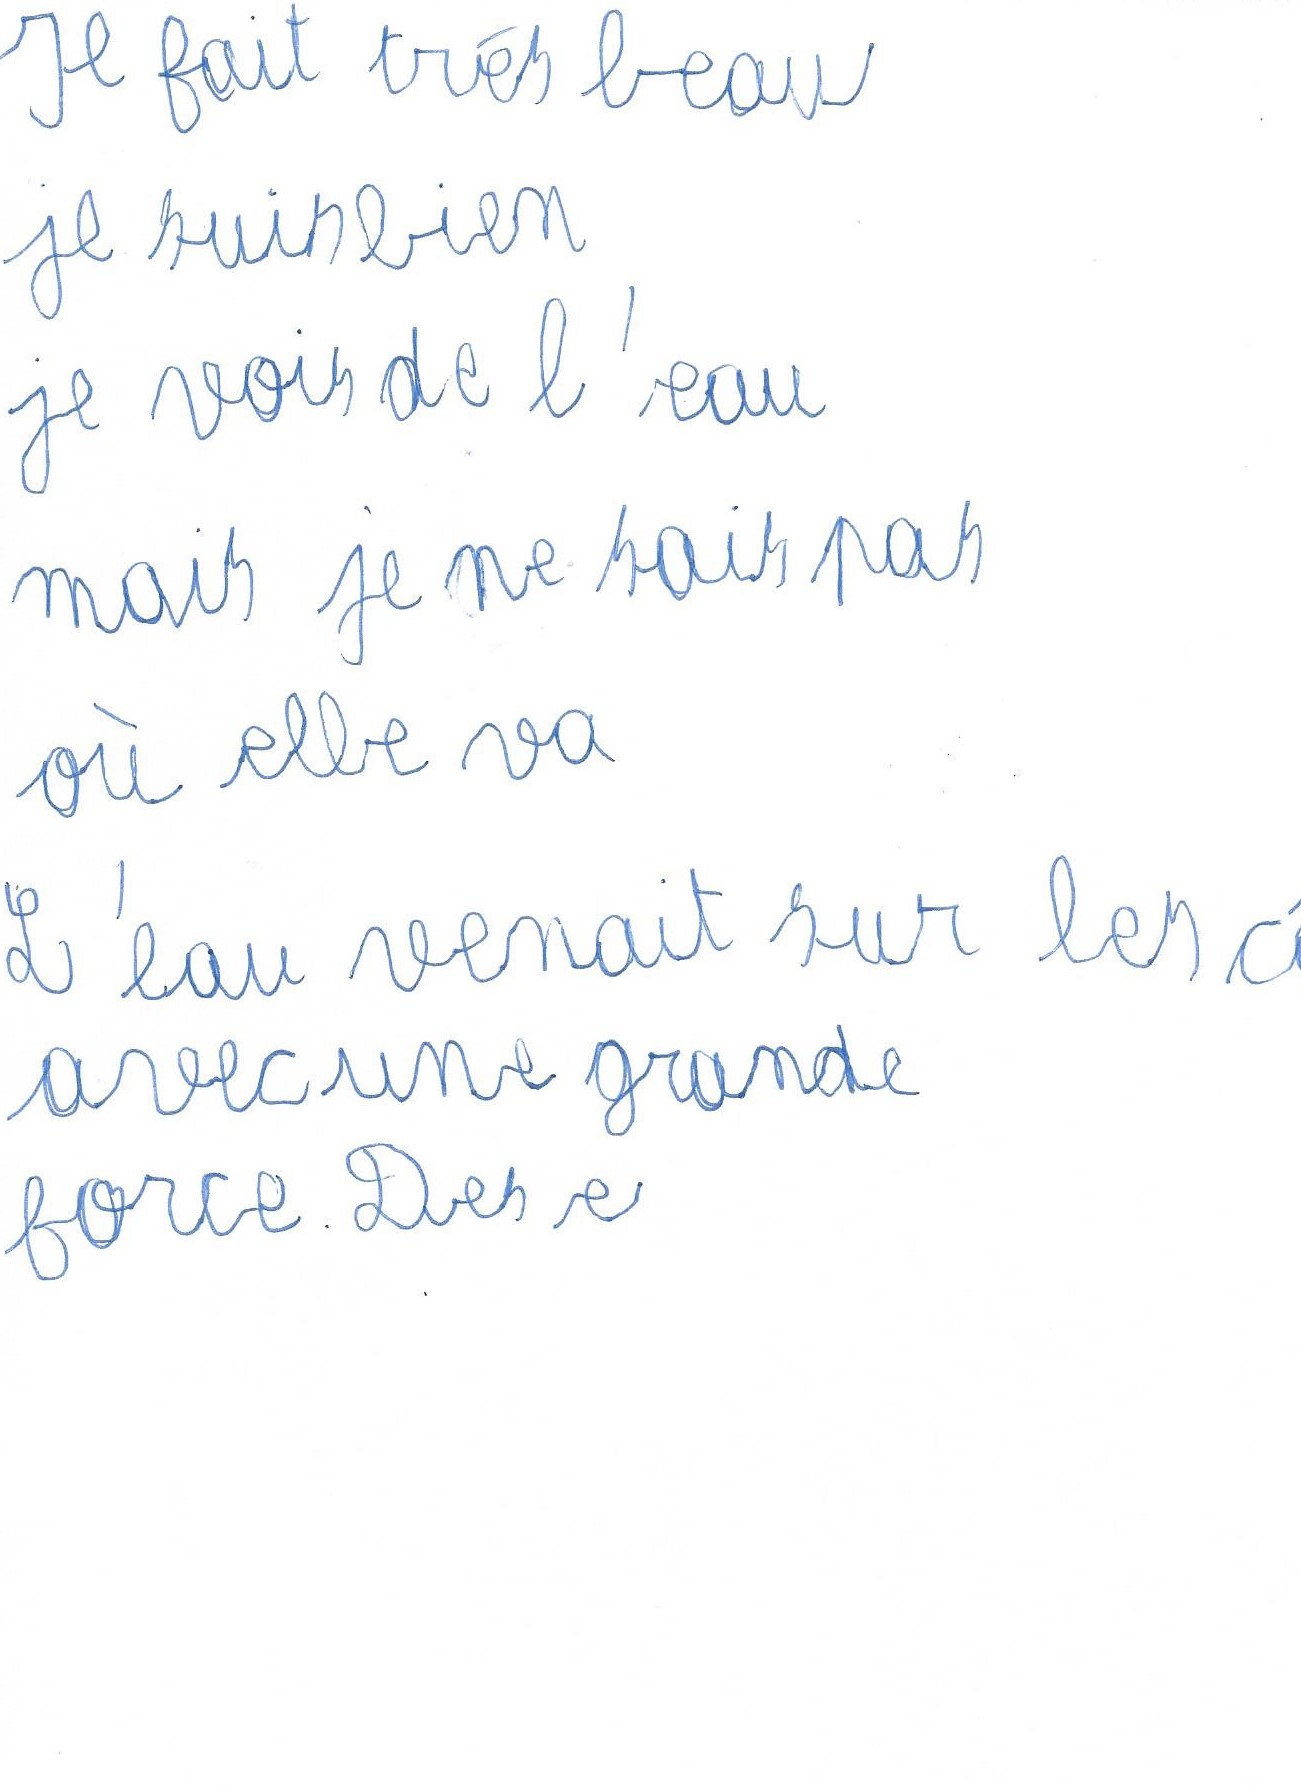 Il fait trés beau
je suis bien
je vois de l'eau
mais je ne sais pas
où elle va
L'eau venait sur les
avec une grande
force. Des e